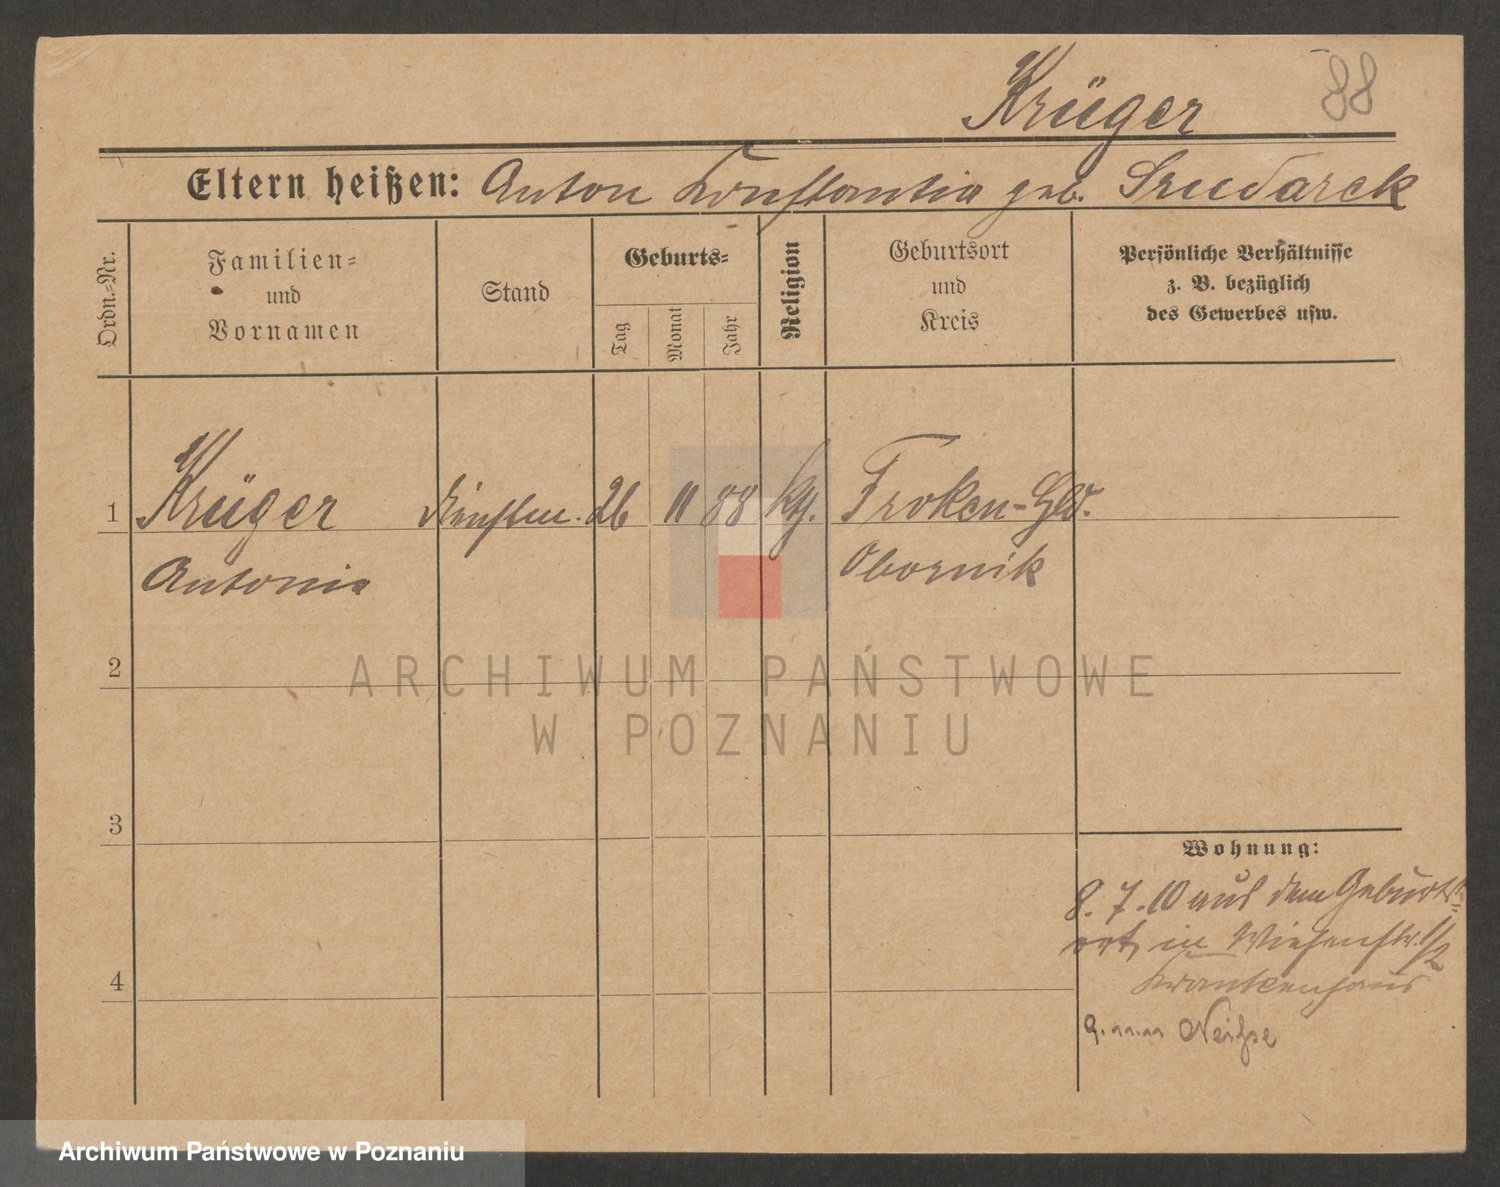 Krüger 88
Eltern heißen: Anton Konstantia geb. Szudarek
Ordn.=Nr.
Familien=
und
Vornamen
Stand
Geburts=
Tag
Monat
Jahr
Religion
Geburtsort
und
Kreis
Persönliche Verhältnisse
z. B. bezüglich
des Gewerbes usw.
1 Krüger 26 11 88 kth. Troken-Hld.
Antonie Obornik
2
3
4
Wohnung:
8. 7. 10 aus dem Geburts=
ort, in Wiesenstr. 1/2
Krankenhaus
Neiße
ARCHIWUM PAŃSTWOWE
W POZNANIU
Archiwum Państwowe w Poznaniu